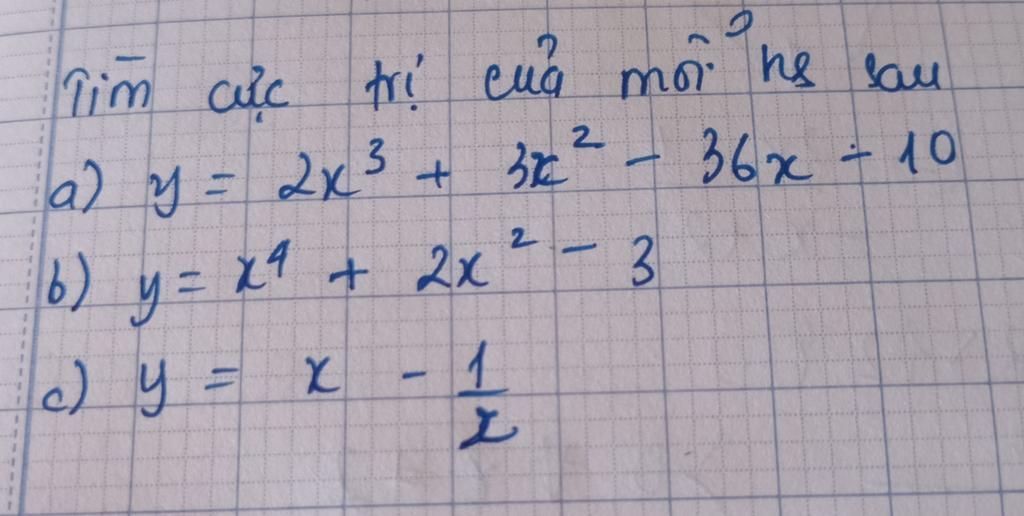 Tìm cực trị của mỗi hs sau
a) y = 2x³ + 3x² - 36x - 10
b) y = x⁴ + 2x² - 3
c) y = x - 1/x